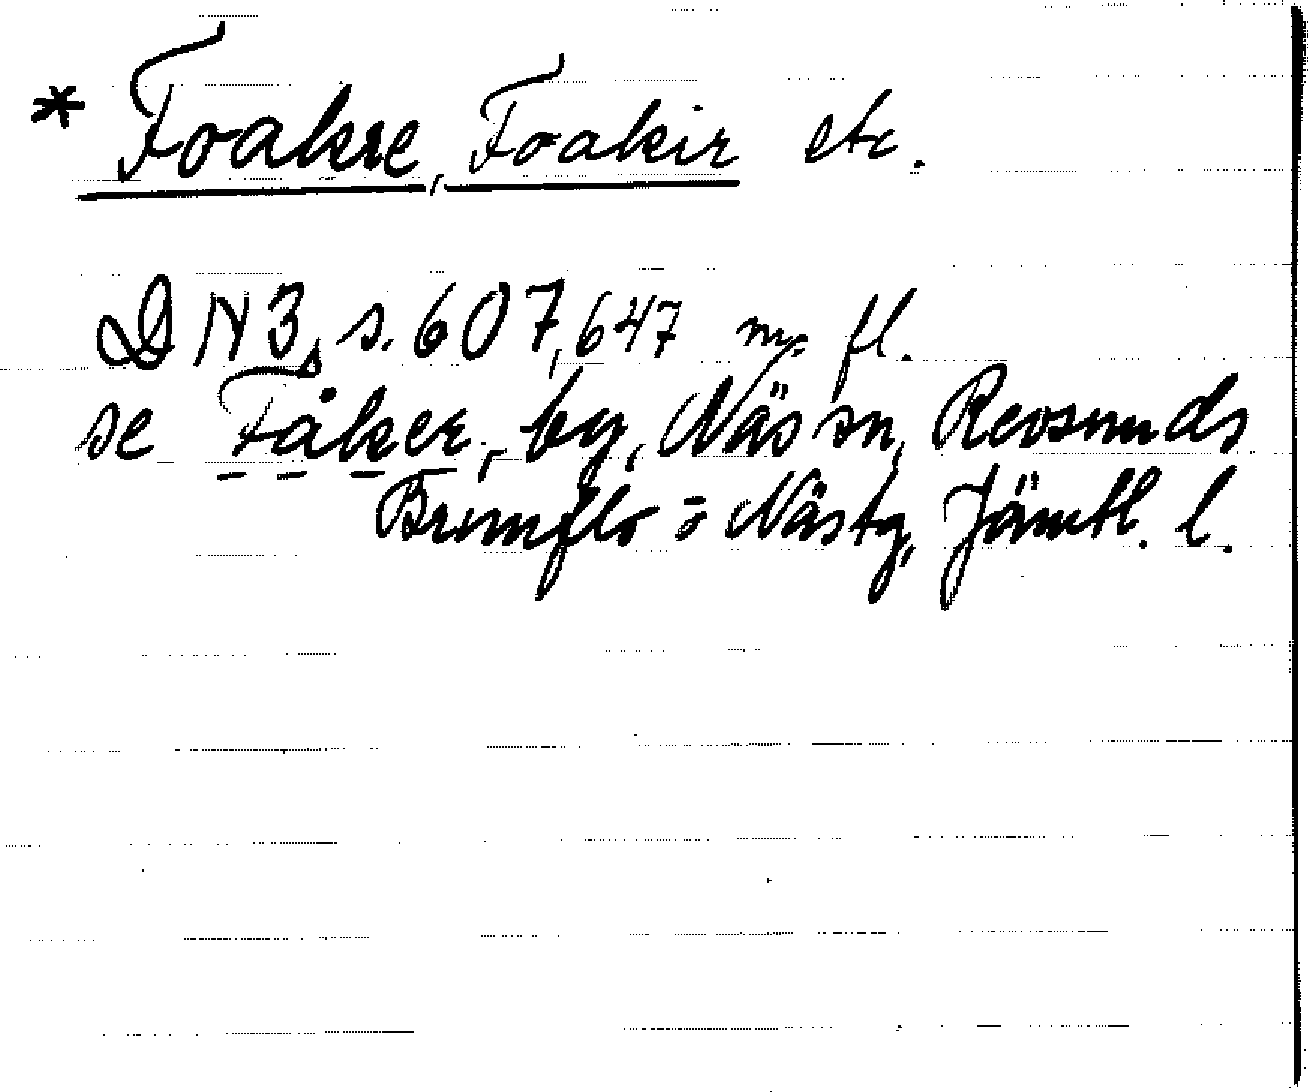 * Foakre, Foakir etc.
DN3, s. 607, 647 m. fl.
se Fåker, by, Näs sn, Revsunds
Brunflo o Nästg, Jämtl. l.